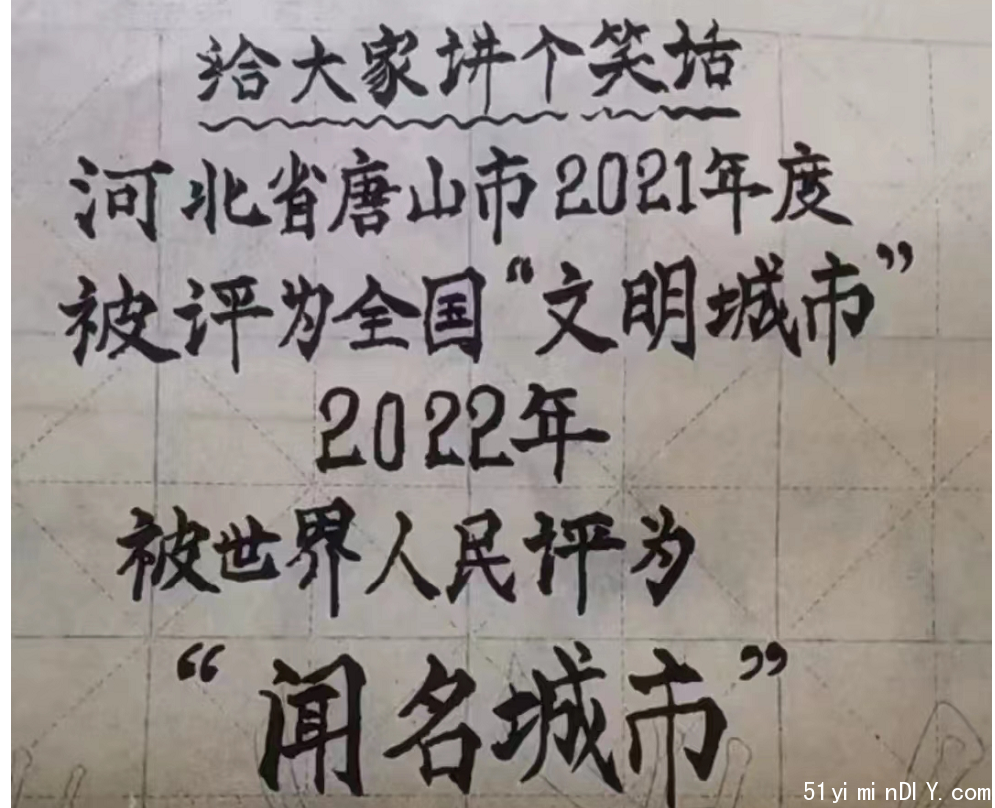 给大家讲个笑话
河北省唐山市2021年度
被评为全国“文明城市”
2022年
被世界人民评为
“闻名城市”
51yiminDIY.com